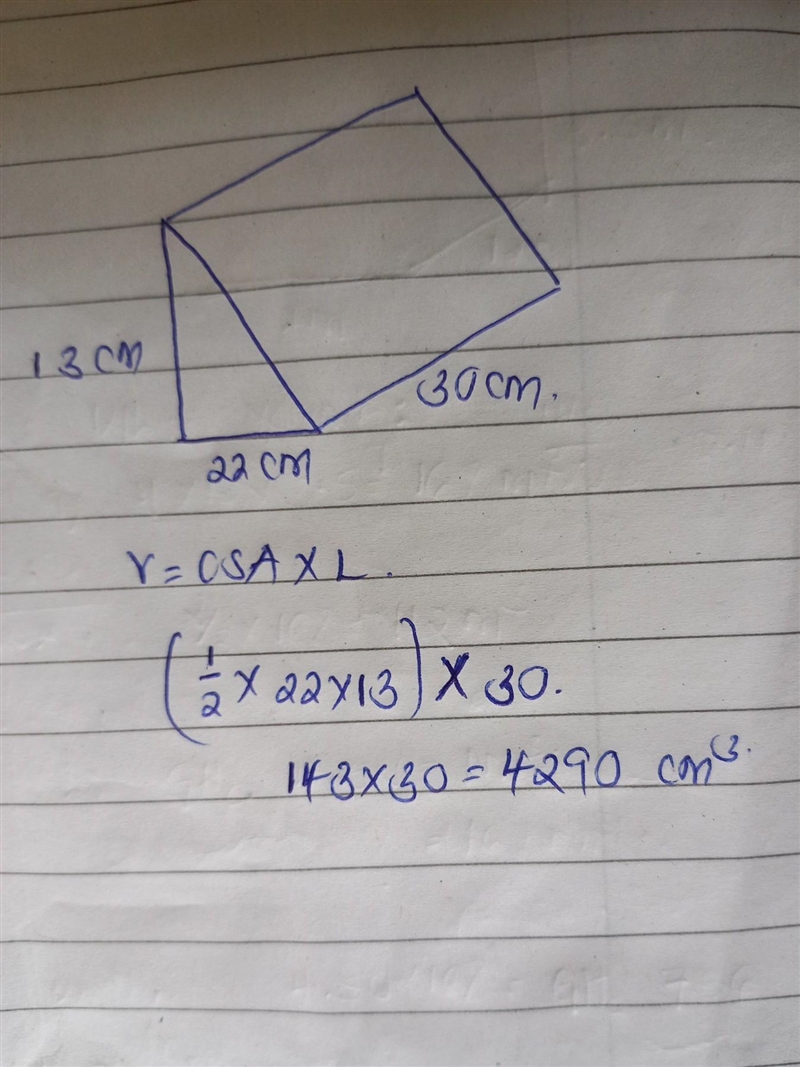 13 cm
30 cm.
22 cm
V = CSA X L.
(1/2 x 22 x 13) X 30.
143 x 30 = 4290 cm³.